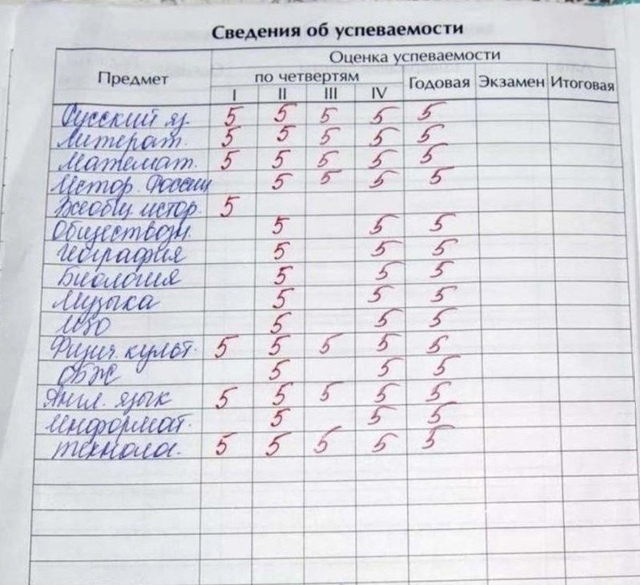 Сведения об успеваемости
Оценка успеваемости
Предмет по четвертям Годовая Экзамен Итоговая
I II III IV
Русский яз. 5 5 5 5 5
Литерат. 5 5 5 5 5
Математ. 5 5 5 5 5
Истор. России 5 5 5 5
Всеобщ. истор. 5
Обществозн. 5 5 5
География 5 5 5
Биология 5 5 5
Музыка 5 5 5
ИЗО 5 5 5
Физич. культ. 5 5 5 5 5
ОБЖ 5 5 5
Англ. язык 5 5 5 5 5
Информат. 5 5 5
Технолог. 5 5 5 5 5